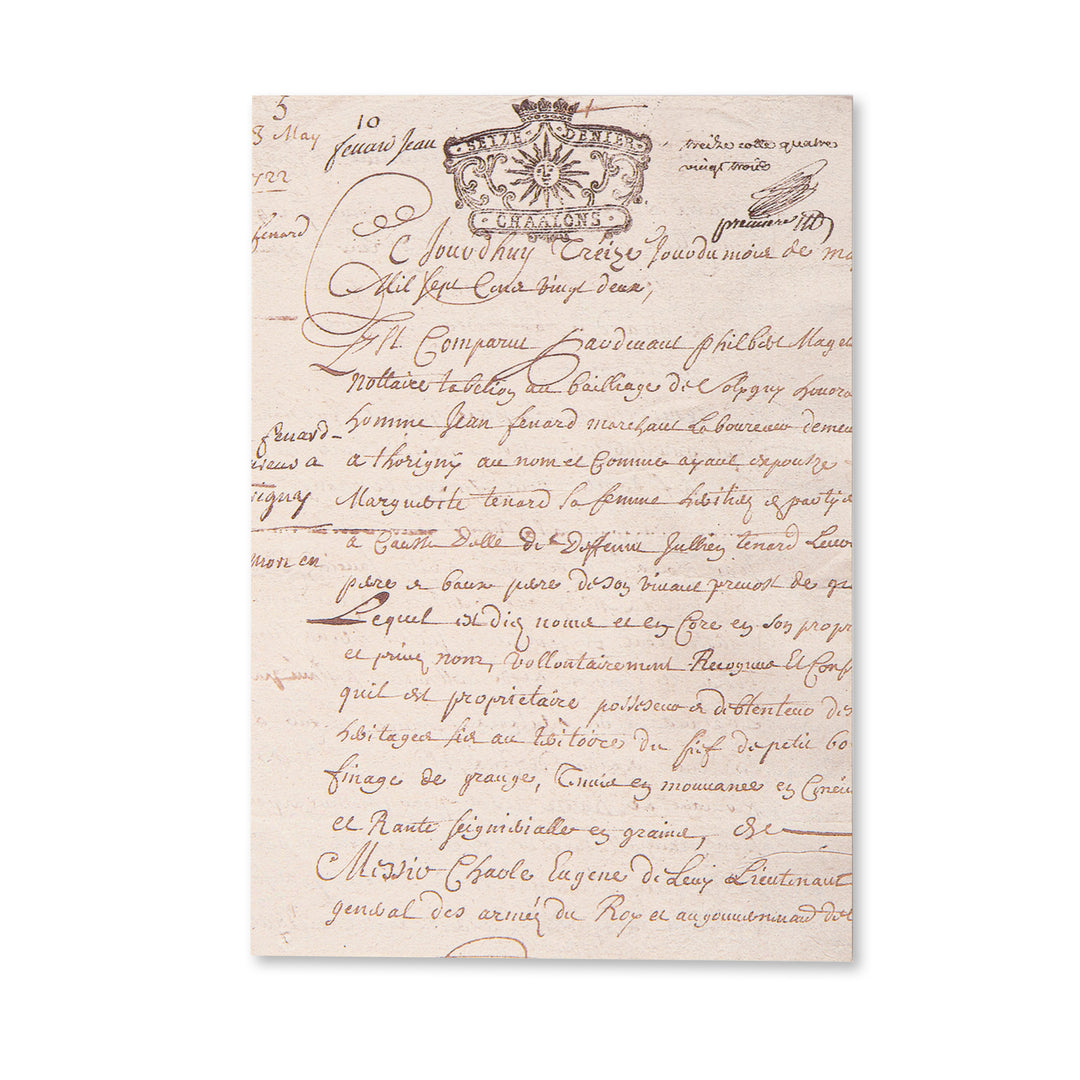 5
8 May
10
fenard Jean
SEIZE DENIER
CHAALONS
treize cotte quatre
vingt trois
premiere
1722
fenard
Ce Jourdhuy Treize Jour du mois de ma
Mil Sept Cens vingt deux,
Est Comparu Pardevant Philbert Mag
Nottaire tabelion au bailliage de Soligny honora
homme Jean fenard marchant Laboureur demeu
a thorigny au nom et Comme ayant espousee
Marguerite tenard sa femme heritiere en partye
a Cause delle de deffunt Jullien tenard Leur
pere et beau pere de son vivant prevost de gr
Lequel esdits noms et en Core en son propr
et privé nom, vollontairement Recognu Et Conf
quil est proprietaire possesseur et debtenteur des
heritages sis au teritoire du fief du petit bo
finage de grange, Tenus en mouvance en Censiv
et Rante seigneurialle en grains, de
Messire Charle Eugene de Levy Lieutenant
general des armés du Roy et au gouvernement de
fenard
a
mort en